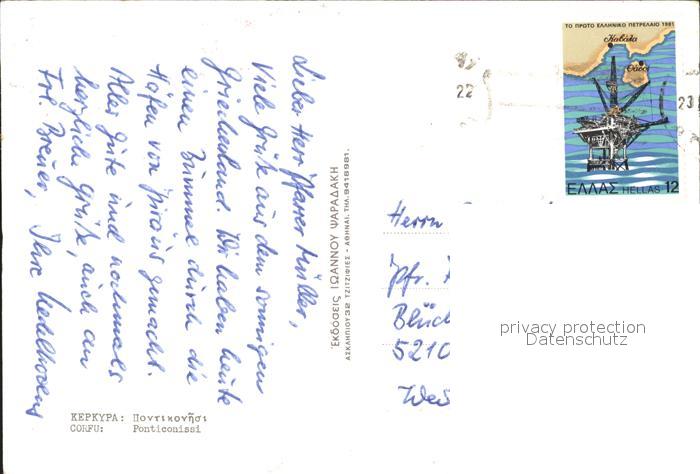 Lieber Herr Pfarrer Müller,
Viele Grüße aus dem sonnigen
Griechenland. Wir haben heute
einen Bummel durch die
Häfen von Piräus gemacht.
Alles Gute und nochmals
herzlich Grüße, auch an
Frl. Breuer, Ihre
ΚΕΡΚΥΡΑ: Ποντικονῆσι
CORFU: Ponticonissi
ἘΚΔΟΣΕΙΣ ΙΩΑΝΝΟΥ ΨΑΡΑΔΑΚΗ
ΑΣΚΛΗΠΙΟΥ 32 ΤΖΙΤΖΙΦΙΕΣ - ΑΘΗΝΑΙ. ΤΗΛ. 9418981.
22
23
ΤΟ ΠΡΩΤΟ ΕΛΛΗΝΙΚΟ ΠΕΤΡΕΛΑΙΟ 1981
Καβάλα
Θάσος
ΕΛΛΑΣ HELLAS 12
Herrn
Pfr.
Blüc
5210
privacy protection
Datenschutz